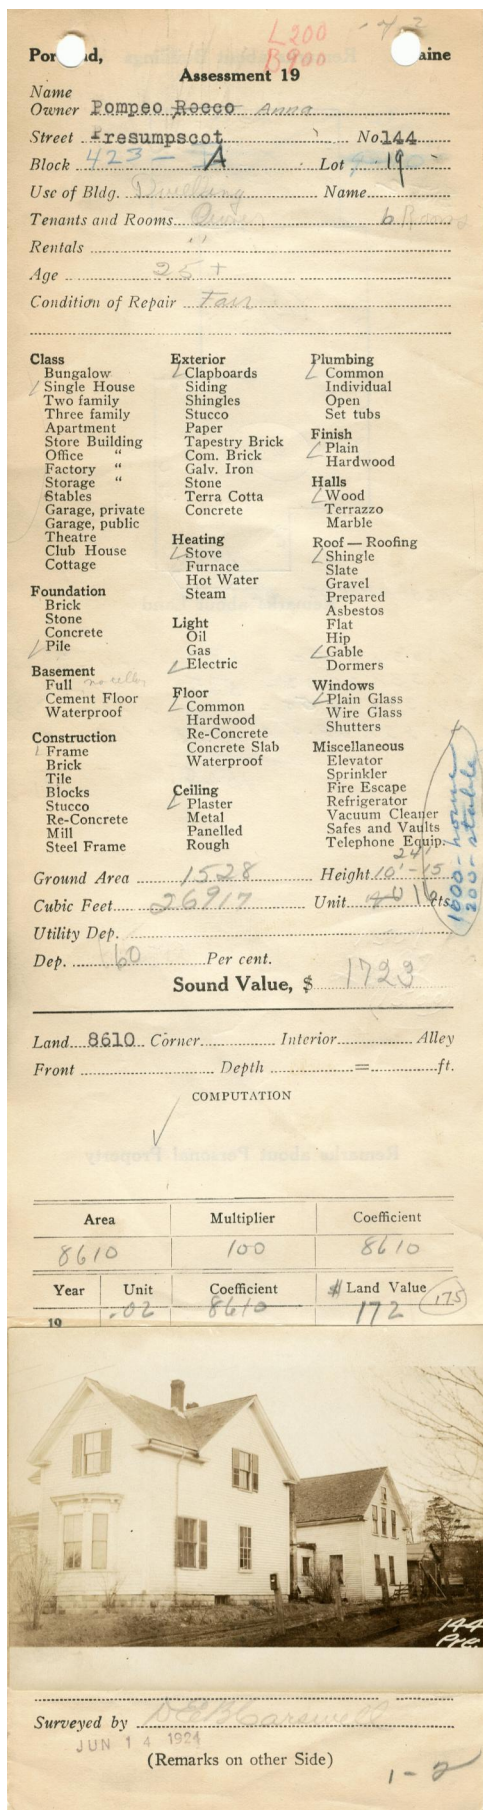 L200
B900
Por nd, aine
Assessment 19
Name
Owner Pompeo Rocco Anna
Street Presumpscot No. 144
Block 423 - A Lot 19
Use of Bldg. Dwelling Name
Tenants and Rooms Owner 6 Rooms
Rentals "
Age 25 +
Condition of Repair Fair
Class
Bungalow
Single House
Two family
Three family
Apartment
Store Building
Office "
Factory "
Storage "
Stables
Garage, private
Garage, public
Theatre
Club House
Cottage
Foundation
Brick
Stone
Concrete
Pile
Basement
Full no cellar
Cement Floor
Waterproof
Construction
Frame
Brick
Tile
Blocks
Stucco
Re-Concrete
Mill
Steel Frame
Exterior
Clapboards
Siding
Shingles
Stucco
Paper
Tapestry Brick
Com. Brick
Galv. Iron
Stone
Terra Cotta
Concrete
Heating
Stove
Furnace
Hot Water
Steam
Light
Oil
Gas
Electric
Floor
Common
Hardwood
Re-Concrete
Concrete Slab
Waterproof
Ceiling
Plaster
Metal
Panelled
Rough
Plumbing
Common
Individual
Open
Set tubs
Finish
Plain
Hardwood
Halls
Wood
Terrazzo
Marble
Roof — Roofing
Shingle
Slate
Gravel
Prepared
Asbestos
Flat
Hip
Gable
Dormers
Windows
Plain Glass
Wire Glass
Shutters
Miscellaneous
Elevator
Sprinkler
Fire Escape
Refrigerator
Vacuum Cleaner
Safes and Vaults
Telephone Equip.
1600-house
200-stable
Ground Area 1528 Height 10'-15 24'
Cubic Feet 26917 Unit 16 cts.
Utility Dep.
Dep. 60 Per cent.
Sound Value, $ 1723
Land 8610 Corner Interior Alley
Front Depth = ft.
COMPUTATION
Area Multiplier Coefficient
8610 100 8610
Year Unit Coefficient $ Land Value
19 .02 8610 172 175
144
Pre.
Surveyed by
JUN 14 1924
(Remarks on other Side)
1-2